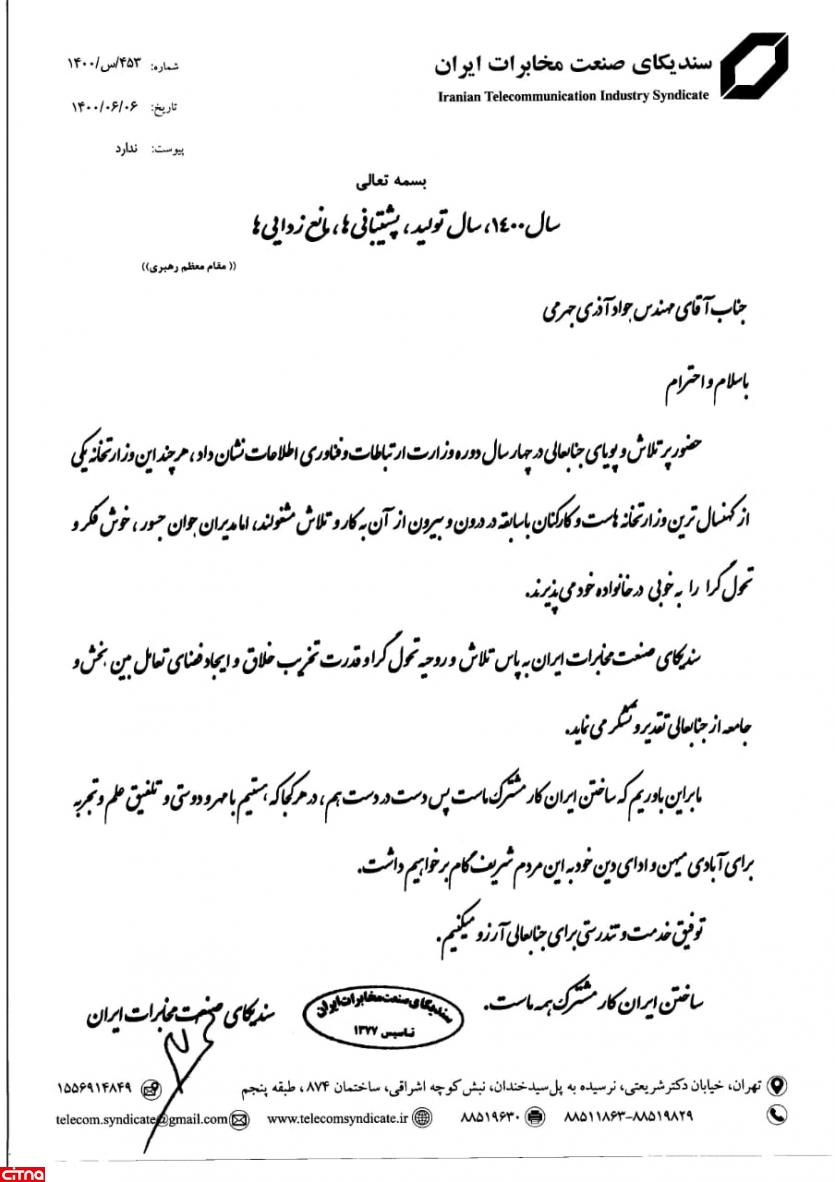 سندیکای صنعت مخابرات ایران
Iranian Telecommunication Industry Syndicate
شماره: ۴۵۳/س/۱۴۰۰
تاریخ: ۱۴۰۰/۰۶/۰۶
پیوست: ندارد
بسمه تعالی
سال ۱۴۰۰، سال تولید، پشتیبانی ها، مانع زدایی ها
(( مقام معظم رهبری))
جناب آقای مهندس جواد آذری جهرمی
باسلام و احترام
حضور پر تلاش و پویای جنابعالی در چهار سال دوره وزارت ارتباطات و فناوری اطلاعات نشان داد، هر چند این وزارتخانه یکی
از کهنسال ترین وزارتخانه هاست و کارکنان باسابقه در درون و بیرون از آن به کار و تلاش مشغولند، اما مدیران جوان جسور، خوش فکر و
تحول گرا را به خوبی در خانواده خود می پذیرند.
سندیکای صنعت مخابرات ایران به پاس تلاش و روحیه تحول گرا و قدرت تخریب خلاق و ایجاد فضای تعامل بین بخش و
جامعه از جنابعالی تقدیر و تشکر می نماید.
ما براین باوریم که ساختن ایران کار مشترک ماست پس دست در دست هم، در هر کجا که هستیم با مهر و دوستی و تلفیق علم و تجربه
برای آبادی میهن و ادای دین خود به این مردم شریف گام بر خواهیم داشت.
توفیق خدمت و تندرستی برای جنابعالی آرزو میکنیم.
ساختن ایران کار مشترک همه ماست.
سندیکای صنعت مخابرات ایران
تاسیس ۱۳۷۷
سندیکای صنعت مخابرات ایران
تهران، خیابان دکتر شریعتی، نرسیده به پل سیدخندان، نبش کوچه اشراقی، ساختمان ۸۷۴، طبقه پنجم
۱۵۵۶۹۱۴۸۴۹
۸۸۵۱۱۸۶۳-۸۸۵۱۹۸۲۹
۸۸۵۱۹۶۳۰
www.telecomsyndicate.ir
telecom.syndicate@gmail.com
citna